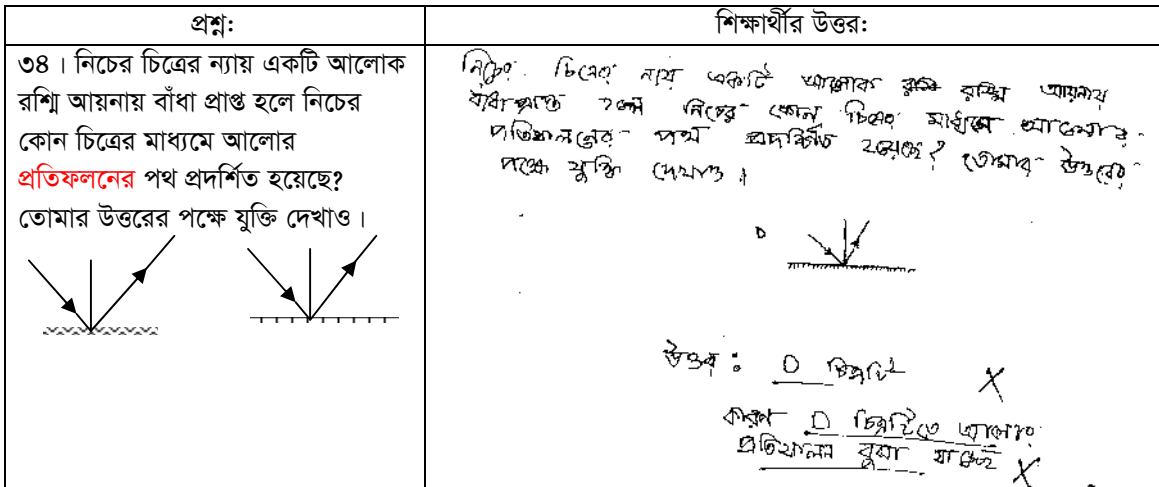 প্রশ্ন:
শিক্ষার্থীর উত্তর:
৩৪। নিচের চিত্রের ন্যায় একটি আলোক
রশ্মি আয়নায় বাঁধা প্রাপ্ত হলে নিচের
কোন চিত্রের মাধ্যমে আলোর
প্রতিফলনের পথ প্রদর্শিত হয়েছে?
তোমার উত্তরের পক্ষে যুক্তি দেখাও।
নিচের চিত্রের ন্যায় একটি আলোক রশ্মি আয়নায়
বাধা প্রাপ্ত হলে নিচের কোন চিত্রের মাধ্যমে আলোর
প্রতিফলনের পথ প্রদর্শিত হয়েছে? তোমার উত্তরের
পক্ষে যুক্তি দেখাও।
D
উত্তর: D চিত্রটি
কারণ D চিত্রটিতে আলোর
প্রতিফলন বুঝা যাচ্ছে